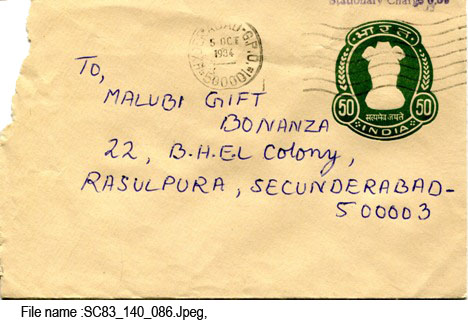 Stationary Charge 0.09
G.P.O.
5 OCT
1984
500001
भारत
50 50
सत्यमेव जयते
INDIA
To,
MALUBI GIFT
BONANZA
22, B.H.EL Colony,
RASULPURA, SECUNDERABAD-
500003
File name :SC83_140_086.Jpeg,